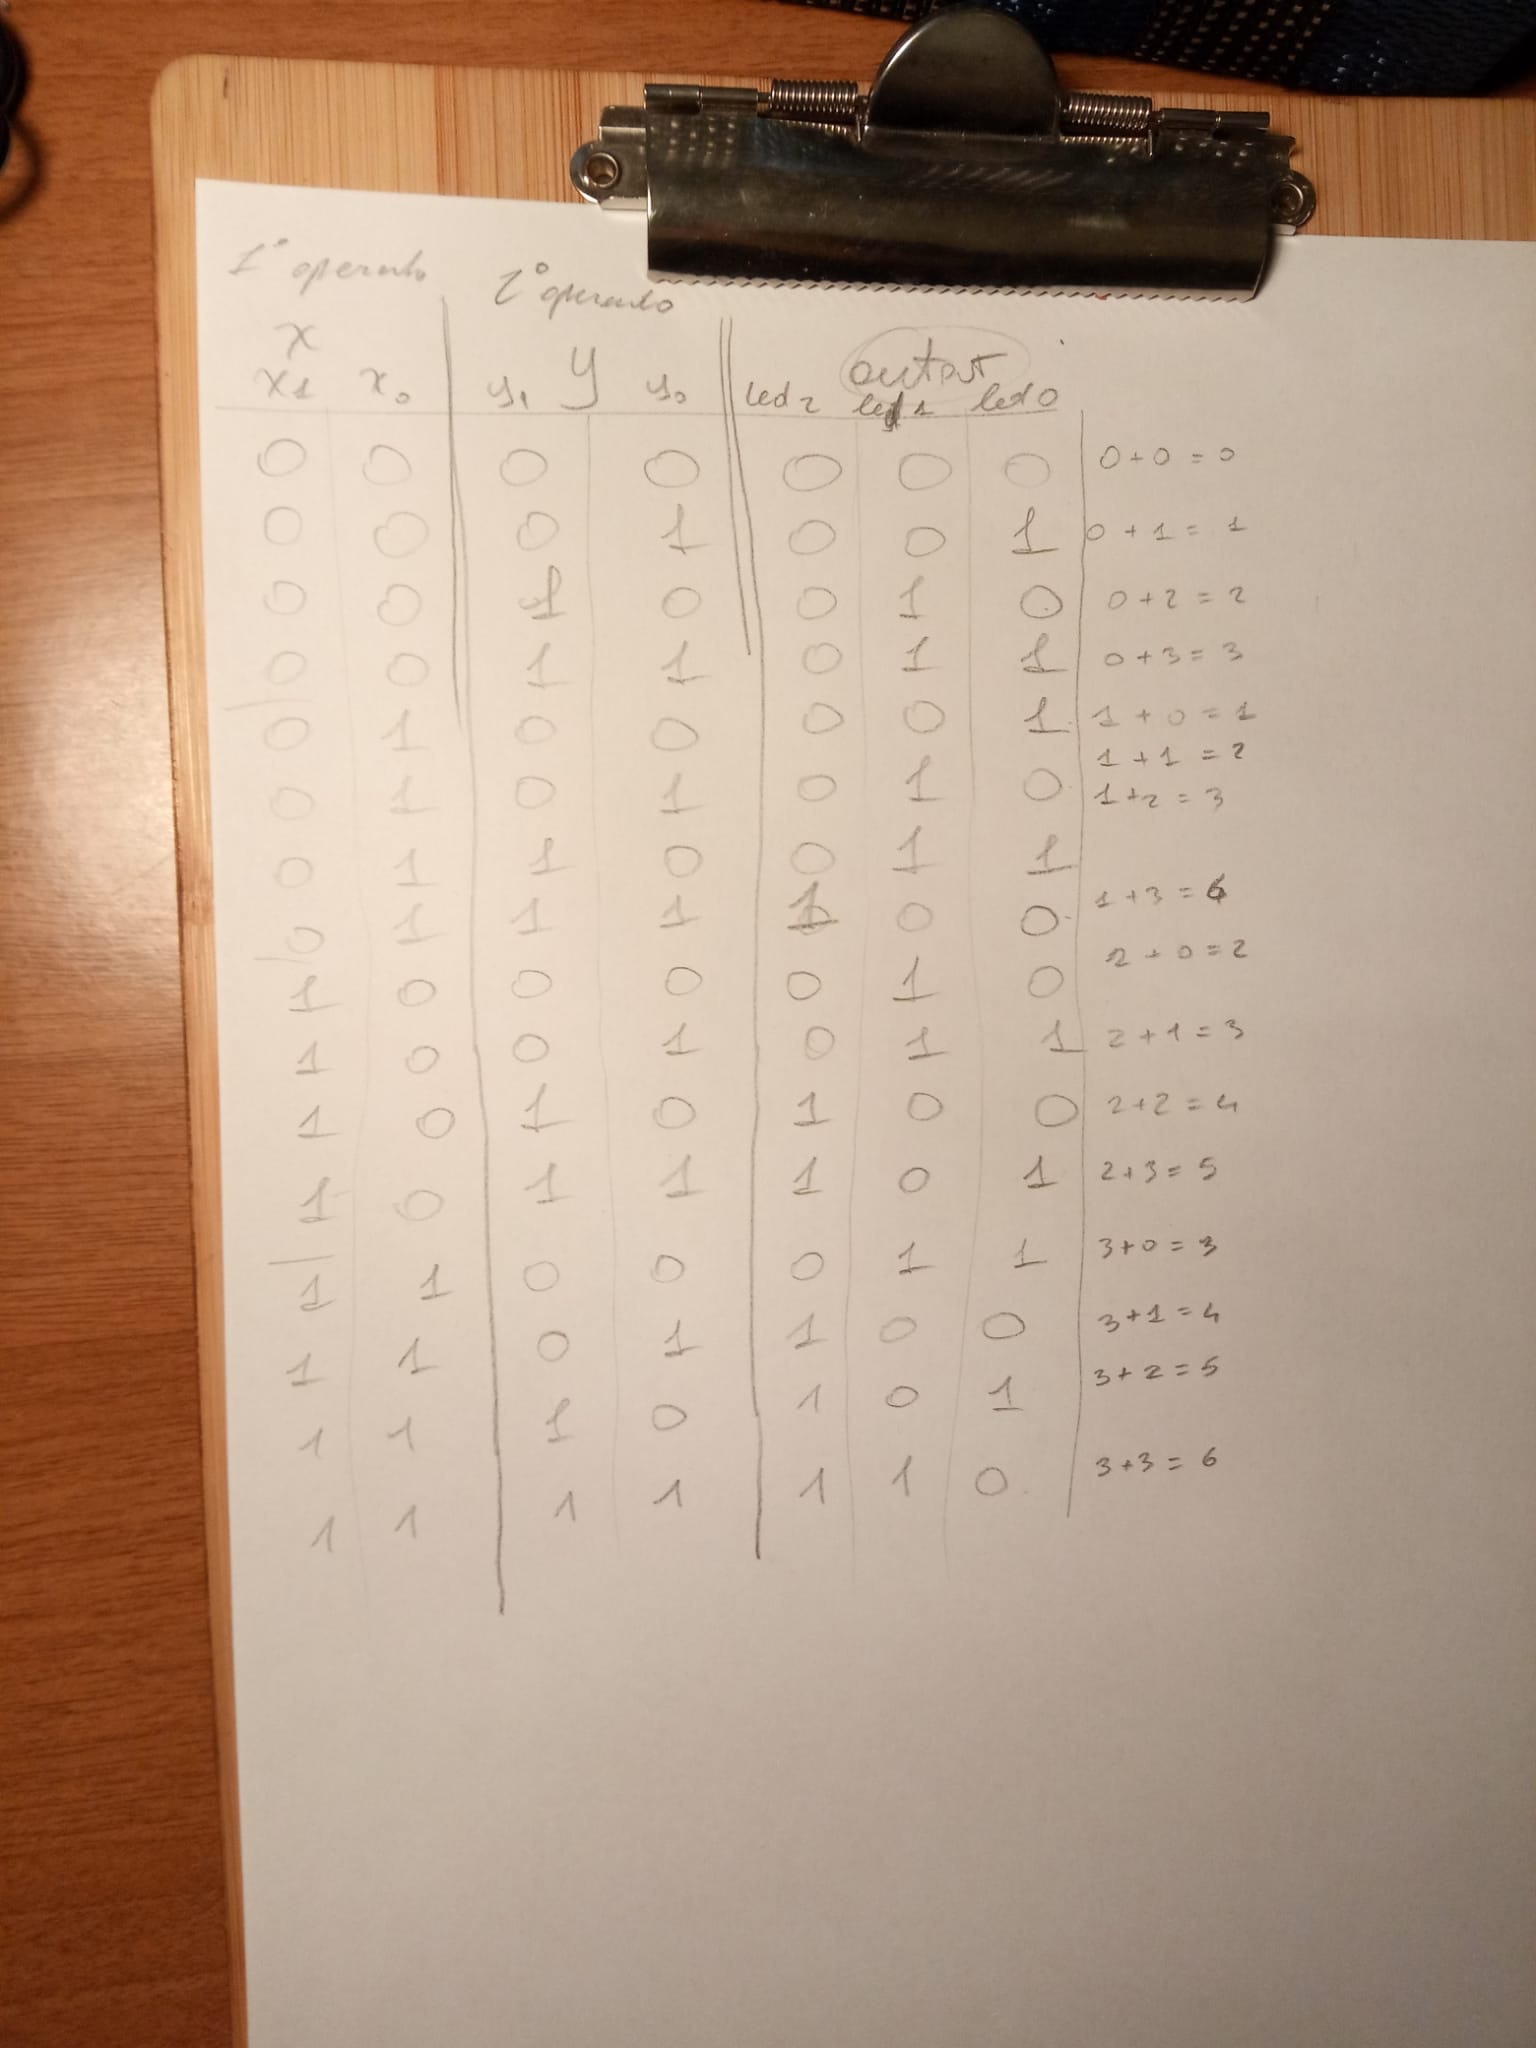 1° operando 2° operando
x y output
x1 x0 y1 y0 led2 led1 led0
0 0 0 0 0 0 0 0+0=0
0 0 0 1 0 0 1 0+1=1
0 0 1 0 0 1 0 0+2=2
0 0 1 1 0 1 1 0+3=3
0 1 0 0 0 0 1 1+0=1
0 1 0 1 0 1 0 1+1=2
0 1 1 0 0 1 1 1+2=3
0 1 1 1 1 0 0 1+3=6
1 0 0 0 0 1 0 2+0=2
1 0 0 1 0 1 1 2+1=3
1 0 1 0 1 0 0 2+2=4
1 0 1 1 1 0 1 2+3=5
1 1 0 0 0 1 1 3+0=3
1 1 0 1 1 0 0 3+1=4
1 1 1 0 1 0 1 3+2=5
1 1 1 1 1 1 0 3+3=6